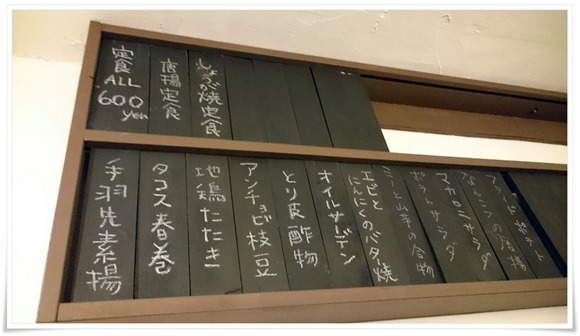 定食
ALL
600
yen
唐揚定食
しょうが焼定食
手羽先素揚
タコス春巻
地鶏たたき
アンチョビ枝豆
とり皮酢物
オイルサーデン
エビと
にんにくのバタ焼
山芋の合物
ポテトサラダ
マカロニサラダ
なんこつの唐揚
フライドポテト